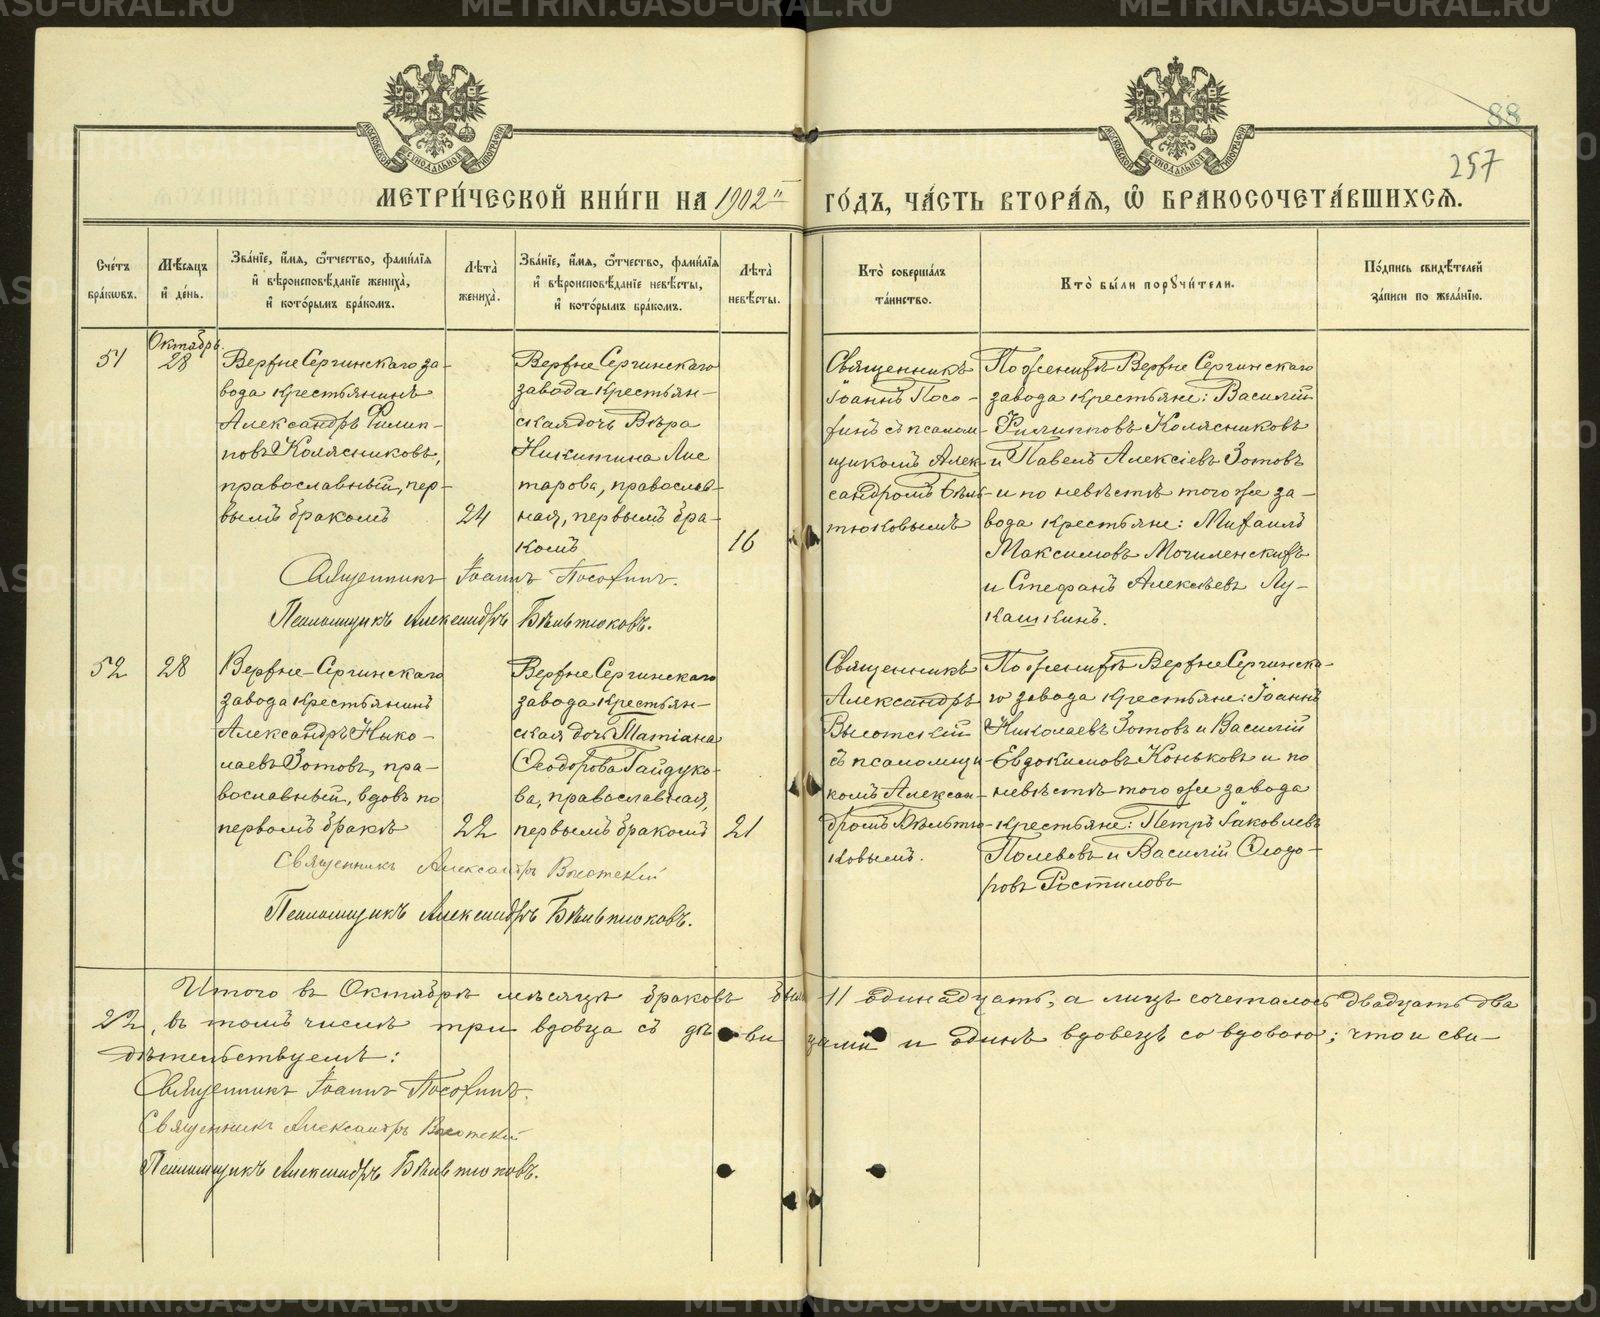 88
257
МОСКОВСКОЙ СѴНОДАЛЬНОЙ ТИПОГРАФІИ
МОСКОВСКОЙ СѴНОДАЛЬНОЙ ТИПОГРАФІИ
МЕТРИ́ЧЕСКОЙ КНИ́ГИ НА 1902й ГО́ДЪ, ЧА́СТЬ ВТОРА́Ѧ, Ѽ БРАКОСОЧЕТА́ВШИХСѦ.
Сче́тъ бра́кѡвъ.
Мѣ́сѧцъ и҆ де́нь.
Зва́нїе, и҆́мѧ, ѻ҆́тчество, фами́лїѧ и҆ вѣроисповѣ́данїе жениха̀, и҆ кото́рымъ бра́комъ.
Лѣ́та̀ жениха̀.
Зва́нїе, и҆́мѧ, ѻ҆́тчество, фами́лїѧ и҆ вѣроисповѣ́данїе невѣ́сты, и҆ кото́рымъ бра́комъ.
Лѣ́та̀ невѣ́сты.
Кто̀ соверша́лъ та́инство.
Кто̀ бы́ли порꙋчи́тели.
По́дпись свидѣ́телей за́писи по жела́нїю.
51
Октябрь
28
Верхне Сергинскаго за-
вода крестьянинъ
Александръ Филип-
повъ Колясниковъ,
православный, пер-
вымъ бракомъ
24
Верхне Сергинскаго
завода крестьян-
ская дочь Вѣра
Никитина Лис
тарова, православ-
ная, первымъ бра-
комъ
16
Священникъ
Іоаннъ Посо-
хинъ съ псалом-
щикомъ Алек-
сандромъ Бѣль-
тюковымъ
По женихѣ Верхне Сергинскаго
завода крестьяне: Василій
Филипповъ Колясниковъ
и Павелъ Алексіевъ Зотовъ
и по невѣстѣ того же за-
вода крестьяне: Михаилъ
Максимовъ Могиленскихъ
и Стефанъ Алексѣевъ Лу-
кашкинъ.
Священникъ Іоаннъ Посохинъ.
Псаломщикъ Александръ Бѣльтюковъ.
52
28
Верхне-Сергинскаго
завода крестьянинъ
Александръ Нико-
лаевъ Зотовъ, пра-
вославный, вдовъ по
первомъ бракѣ
22
Верхне Сергинскаго
завода крестьян-
ская дочь Татіана
Ѳеодорова Гайдуко-
ва, православная,
первымъ бракомъ
21
Священникъ
Александръ
Высотскій
съ псаломщи-
комъ Алексан-
дромъ Бѣльтю-
ковымъ.
По женихѣ Верхне Сергинска-
го завода крестьяне: Іоаннъ
Николаевъ Зотовъ и Василій
Евдокимовъ Коньковъ и по
невѣстѣ того же завода
крестьяне: Петръ Іаковлевъ
Полевовъ и Василій Ѳеодо-
ровъ Ростиловъ
Священникъ Александръ Высотскій
Псаломщикъ Александръ Бѣльтюковъ.
Итого въ Октябрѣ мѣсяцѣ браковъ было 11 одинадцать, а лицъ сочеталось двадцать два
22, въ томъ числѣ три вдовца съ дѣвицами и одинъ вдовецъ со вдовою; что и сви-
дѣтельствуемъ:
Священникъ Іоаннъ Посохинъ.
Священникъ Александръ Высотскій
Псаломщикъ Александръ Бѣльтюковъ.
METRIKI.GASO-URAL.RU